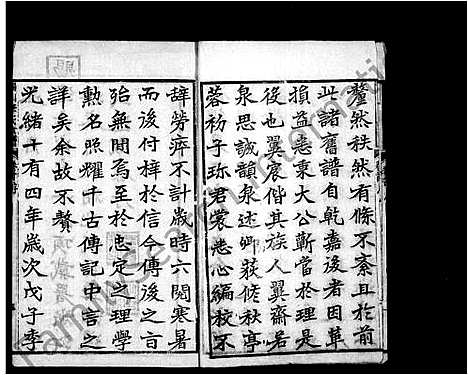 釐然秩然有條不紊且於前
此諸舊譜自乾嘉後者因革
損益悉秉大公蘄當於理是
後也翼宸偕其族人翼齋若
泉思誠韻泉述卿荻修秋亭
蓉礽子珎君裳悉心編校不
辭勞瘁不計歲時六閱寒暑
而後付梓於信今傳後之旨
殆無閒焉至於忠定之理學
勲名照耀千古傳記中言之
詳矣余故不贅
光緒十有四年歲次戊子季